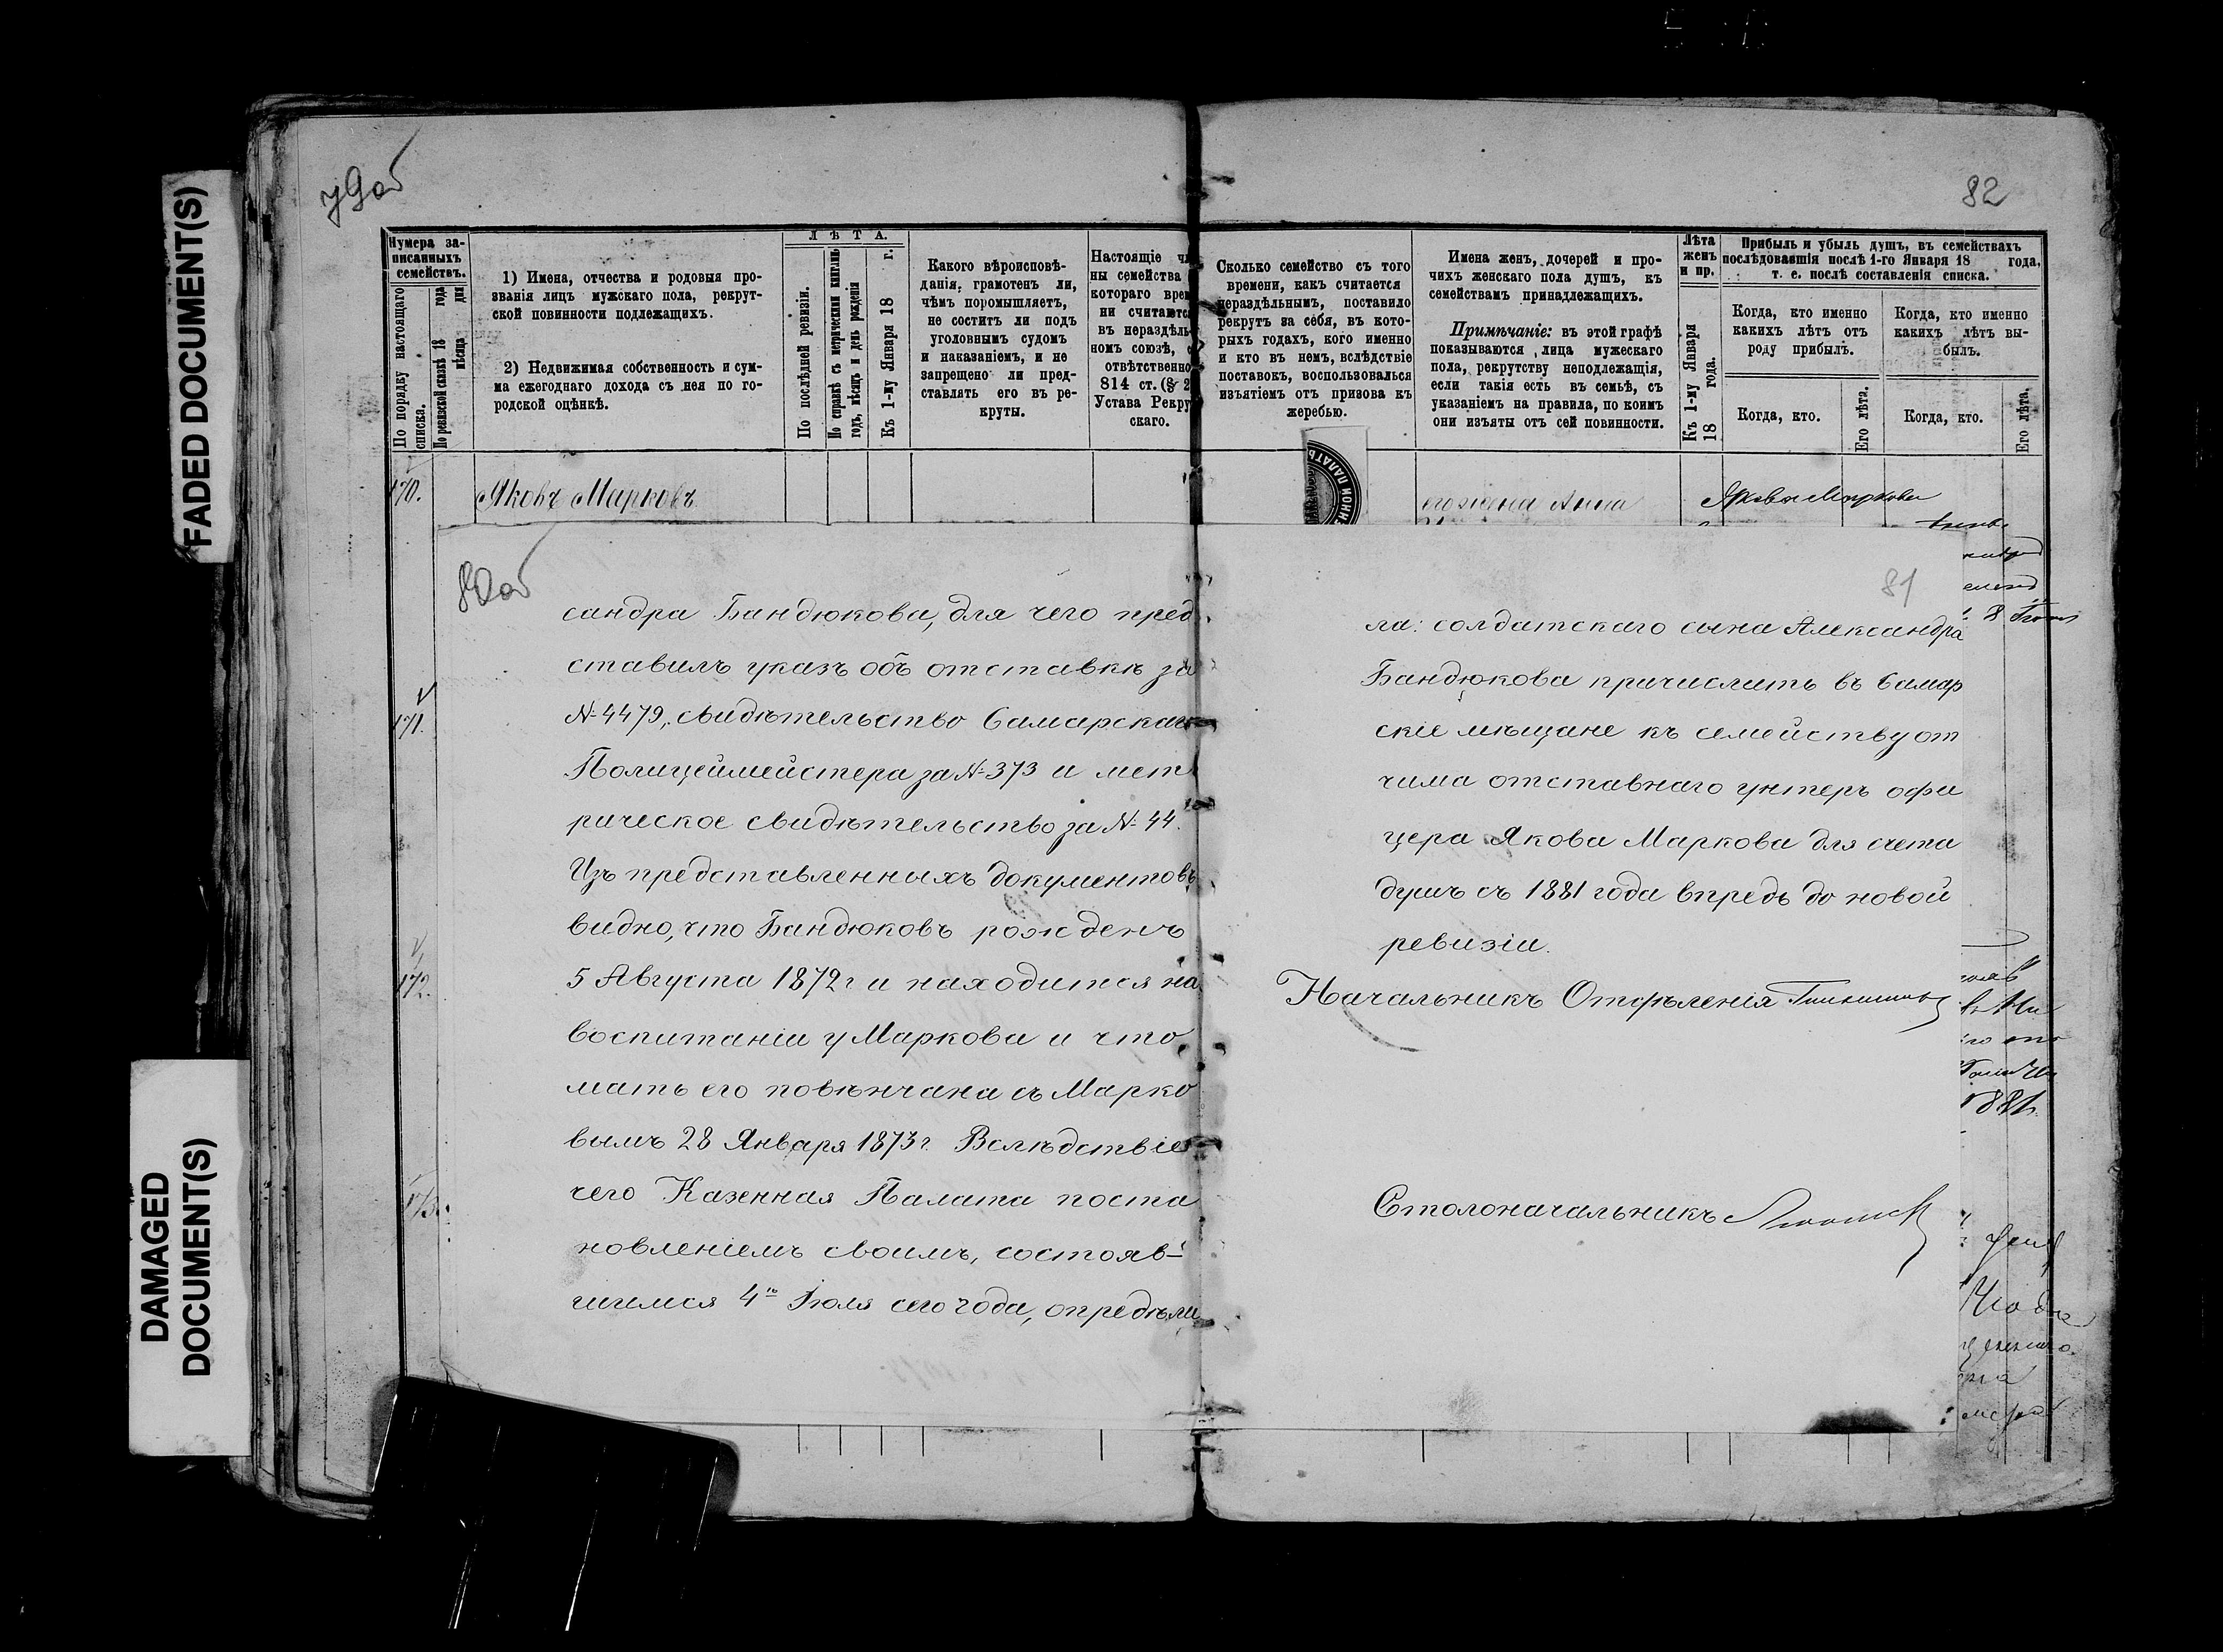 FADED DOCUMENT(S)
DAMAGED
DOCUMENT(S)
79об
82
Нумера за-
писанныхъ
семействъ.
По порядку настоящаго
списка.
По ревизской сказкѣ 18 года
мѣсяца дня
1) Имена, отчества и родовыя про-
званія лицъ мужскаго пола, рекрут-
ской повинности подлежащихъ.
2) Недвижимая собственность и сум-
ма ежегоднаго дохода съ нея по го-
родской оцѣнкѣ.
ЛѢТА.
По послѣдней ревизіи.
По справкѣ съ метрическими книгами
годъ, мѣсяцъ и день рожденія
Къ 1-му Января 18 г.
Какого вѣроисповѣ-
данія, грамотенъ ли,
чѣмъ поромышляетъ,
не соститъ ли подъ
уголовнымъ судомъ
и наказаніемъ, и не
запрещено ли пред-
ставлять его въ ре-
круты.
Настоящіе чл
ны семейства
котораго врем
ни считаютс
въ нераздѣль
номъ союзѣ, с
отвѣтственно
814 ст. (§ 2
Устава Рекру
скаго.
Сколько семейство съ того
времени, какъ считается
нераздѣльнымъ, поставило
рекрутъ за себя, въ кото-
рыхъ годахъ, кого именно
и кто въ немъ, вслѣдствіе
поставокъ, воспользовался
изъятіемъ отъ призова къ
жеребью.
Имена женъ, дочерей и про-
чихъ женскаго пола душъ, къ
семействамъ принадлежащихъ.
Примѣчаніе: въ этой графѣ
показываются лица мужескаго
пола, рекрутству неподлежащія,
если такія есть въ семьѣ, съ
указаніемъ на правила, по коимъ
они изъяты отъ сей повинности.
Лѣта
женъ
и пр.
Къ 1-му Января
18 года.
Прибыль и убыль душъ, въ семействахъ
послѣдовавшія послѣ 1-го Января 18 года,
т. е. послѣ составленія списка.
Когда, кто именно
какихъ лѣтъ отъ
роду прибылъ.
Когда, кто именно
какихъ лѣтъ вы-
былъ.
Когда, кто.
Его лѣта.
Когда, кто.
Его лѣта.
170.
Яковъ Марковъ
его жена Анна
171.
172.
173.
80об
сандра Бандюкова, для чего пред
ставилъ указъ объ отставкѣ за
№ 4479, свидѣтельство Самарскаго
Полицеймейстера за № 373 и мет
рическое свидѣтельство за № 44.
Изъ представленныхъ документовъ
видно, что Бандюковъ рожденъ
5 Августа 1872 г и находится на
воспитаніи у Маркова и что
мать его повѣнчана съ Марко
вымъ 28 Января 1873 г. Вслѣдствіе
чего Казенная Палата поста
новленіемъ своимъ, состояв-
шимся 4го Іюля сего года, опредѣли
81
ла: солдатскаго сына Александра
Бандюкова причислить въ Самар
скіе мѣщане къ семейству от
чима отставнаго унтеръ офи
цера Якова Маркова для счета
душъ съ 1881 года впредь до новой
ревизіи.
Начальникъ Отдѣленія
Столоначальникъ
1881